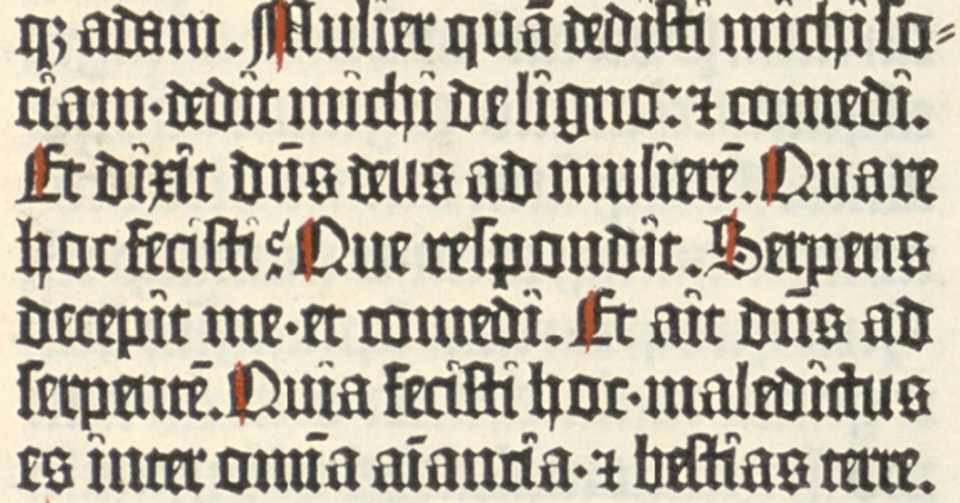 qꝫ adam. Mulier quā dedisti michi so⸗
ciam·dedit michi de ligno: ⁊ comedi.
Et dixit dn̄s deus ad mulierē. Quare
hoc fecisti? Que respondit. Serpens
decepit me·et comedi. Et ait dn̄s ad
serpentē. Quia fecisti hoc·maledictus
es inter omīa aīantia·⁊ bestias terre.